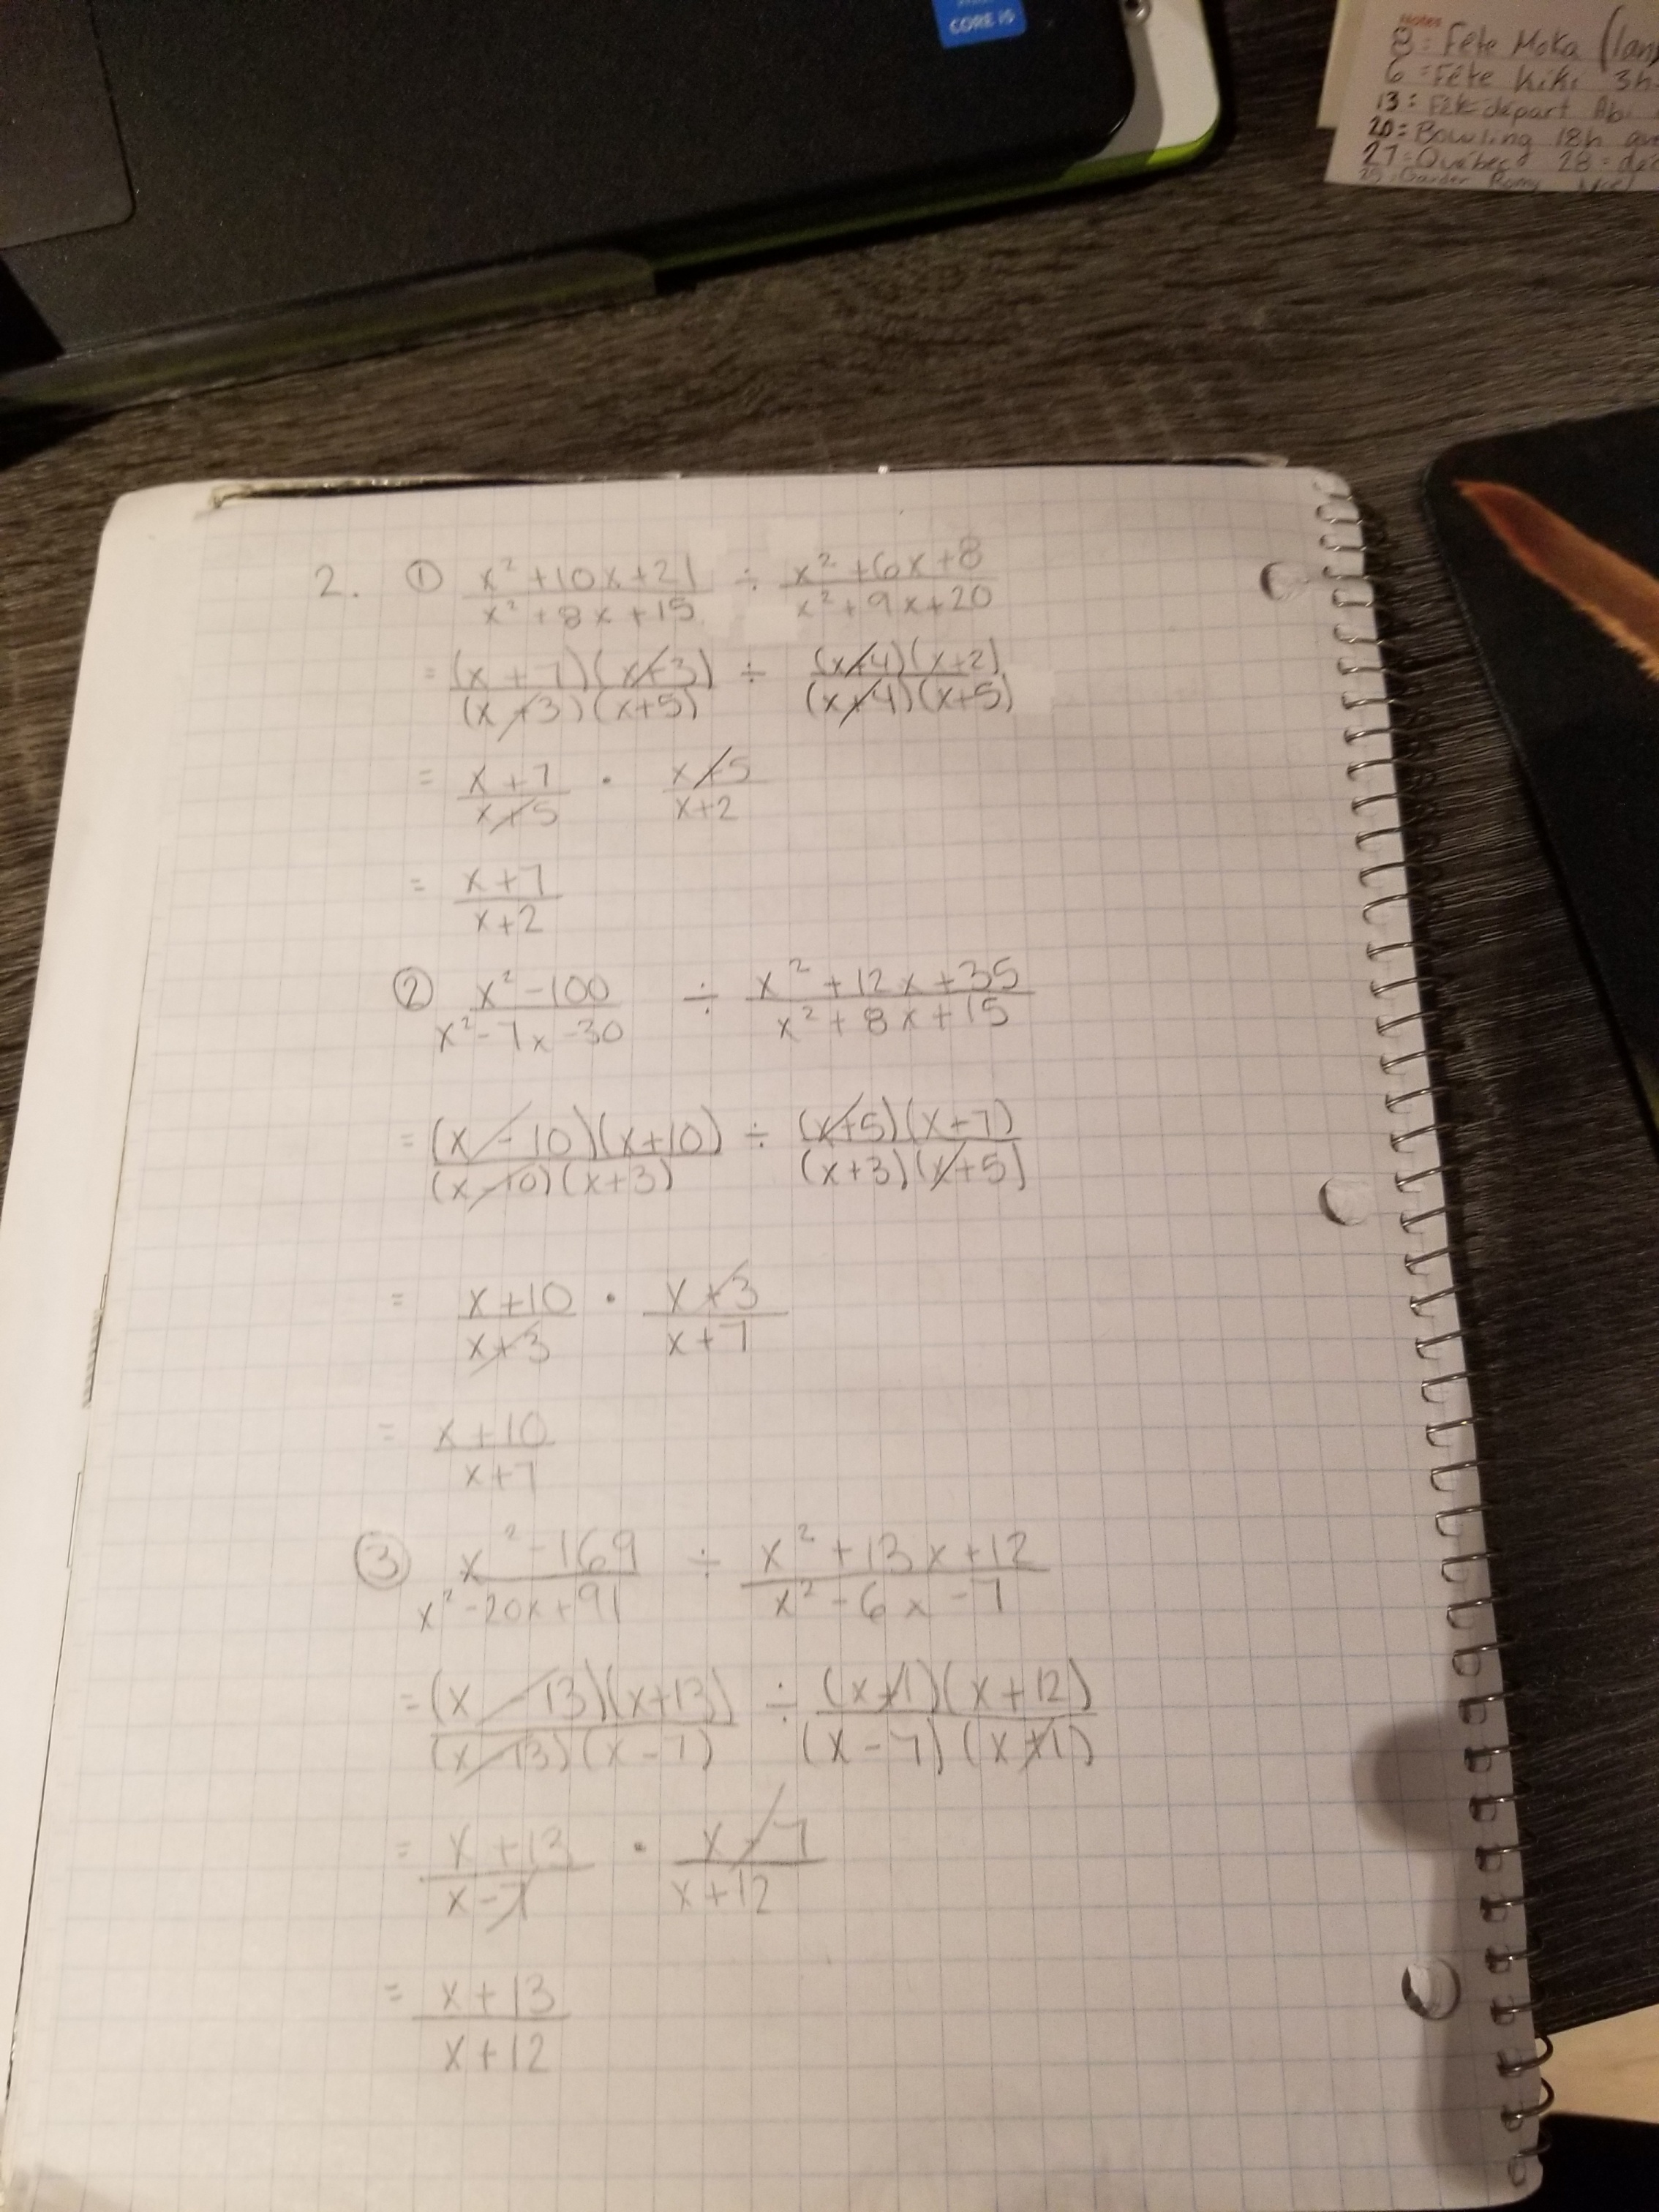 CORE i5
Notes
8: Fête Moka
6 = Fête Kiki 3h
13: Fête départ
20= Bowling 18h
27=Québec 28=
Garder Romy
2. ① x² +10x+21 / x² +8x+15 ÷ x² +6x+8 / x² +9x+20
= (x + 7)(x+3) / (x +3)(x+5) ÷ (x+4)(x+2) / (x+4)(x+5)
= x+7 / x+5 · x+5 / x+2
= x+7 / x+2
② x² -100 / x² -7x -30 ÷ x² +12x+35 / x² +8x+15
= (x -10)(x+10) / (x-10)(x+3) ÷ (x+5)(x+7) / (x+3)(x+5)
= x+10 / x+3 · x+3 / x+7
= x+10 / x+7
③ x² -169 / x² -20x+91 ÷ x² +13x+12 / x² -6x -7
= (x -13)(x+13) / (x-13)(x-7) ÷ (x+1)(x+12) / (x-7)(x+1)
= x+13 / x-7 · x-7 / x+12
= x+13 / x+12